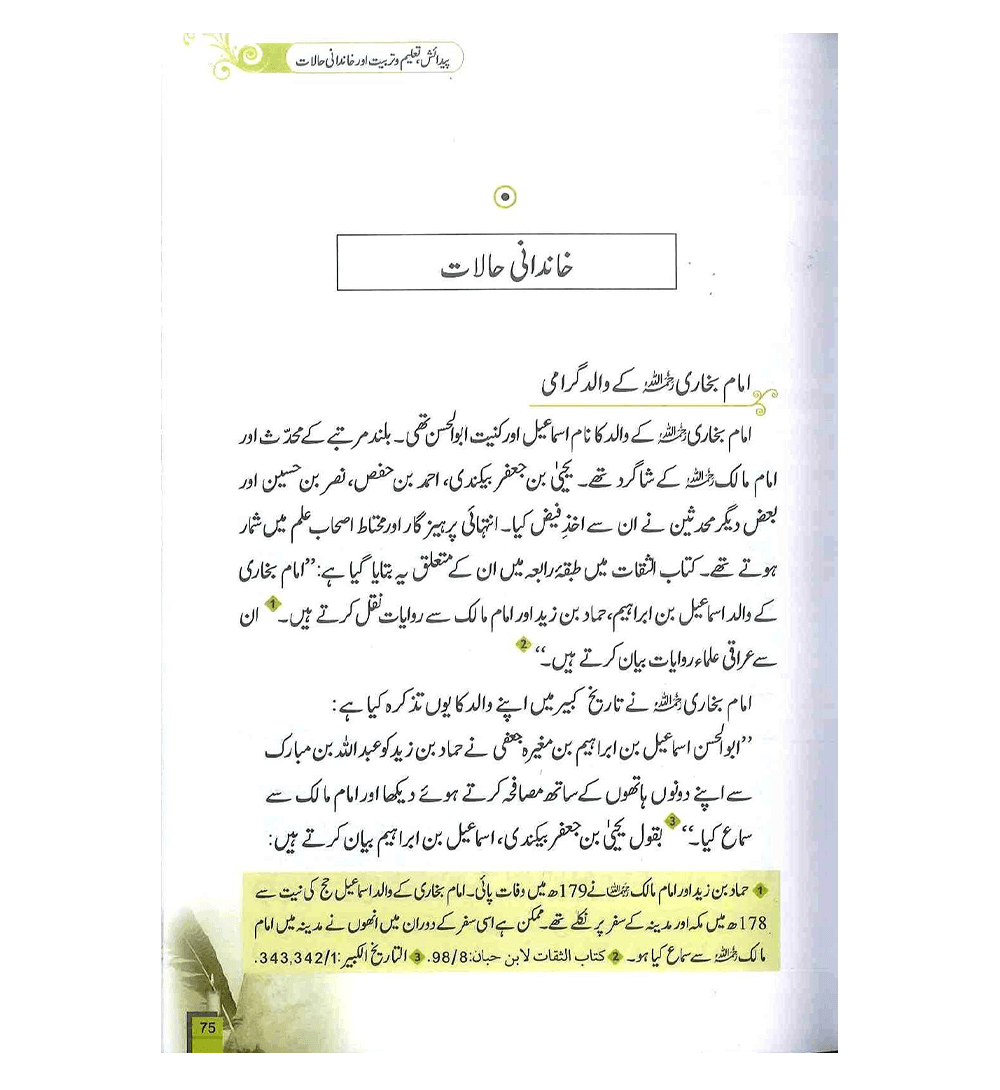 پیدائش، تعلیم و تربیت اور خاندانی حالات
خاندانی حالات
امام بخاری رحمۃ اللہ کے والد گرامی
امام بخاری رحمۃ اللہ کے والد کا نام اسماعیل اور کنیت ابوالحسن تھی۔ بلند مرتبے کے محدّث اور
امام مالک رحمۃ اللہ کے شاگرد تھے۔ یحییٰ بن جعفر بیکندی، احمد بن حفص، نصر بن حسین اور
بعض دیگر محدثین نے ان سے اخذِ فیض کیا۔ انتہائی پرہیز گار اور محتاط اصحاب علم میں شمار
ہوتے تھے۔ کتاب الثقات میں طبقۂ رابعہ میں ان کے متعلق یہ بتایا گیا ہے: ”امام بخاری
کے والد اسماعیل بن ابراہیم، حماد بن زید اور امام مالک سے روایات نقل کرتے ہیں۔ 1 ان
سے عراقی علماء روایات بیان کرتے ہیں۔“ 2
امام بخاری رحمۃ اللہ نے تاریخ کبیر میں اپنے والد کا یوں تذکرہ کیا ہے:
”ابوالحسن اسماعیل بن ابراہیم بن مغیرہ جعفی نے حماد بن زید کو عبد اللہ بن مبارک
سے اپنے دونوں ہاتھوں کے ساتھ مصافحہ کرتے ہوئے دیکھا اور امام مالک سے
سماع کیا۔“ 3 بقول یحییٰ بن جعفر بیکندی، اسماعیل بن ابراہیم بیان کرتے ہیں:
1 حماد بن زید اور امام مالک رحمۃ اللہ نے 179ھ میں وفات پائی۔ امام بخاری کے والد اسماعیل حج کی نیت سے
178ھ میں مکہ اور مدینہ کے سفر پر نکلے تھے۔ ممکن ہے اسی سفر کے دوران میں انھوں نے مدینہ میں امام
مالک رحمۃ اللہ سے سماع کیا ہو۔ 2 کتاب الثقات لابن حبان: 98/8. 3 التاريخ الكبير: 343,342/1.
75